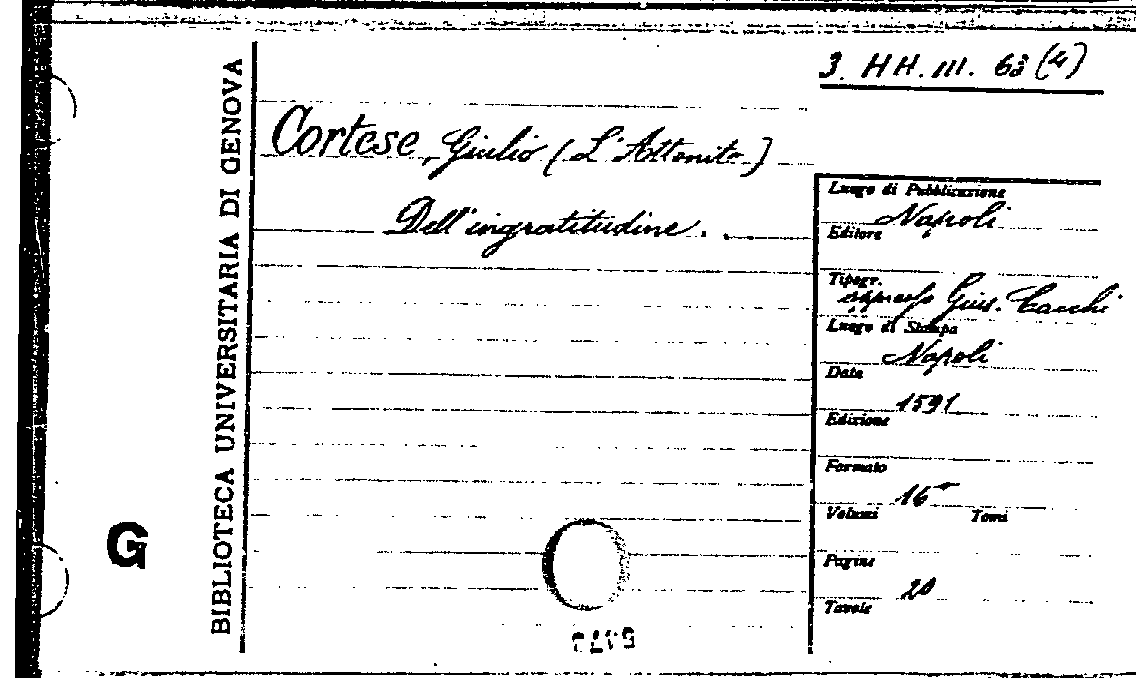 3. HH. III. 63 (4)
BIBLIOTECA UNIVERSITARIA DI GENOVA
Cortese, Giulio (L'Attonito)
Dell'ingratitudine.
Luogo di Pubblicazione
Napoli
Editore
Tipogr.
appresso Gius. Cacchi
Luogo di Stampa
Napoli
Data
1591
Edizione
Formato
16°
Volumi Tomi
Pagine
20
Tavole
G